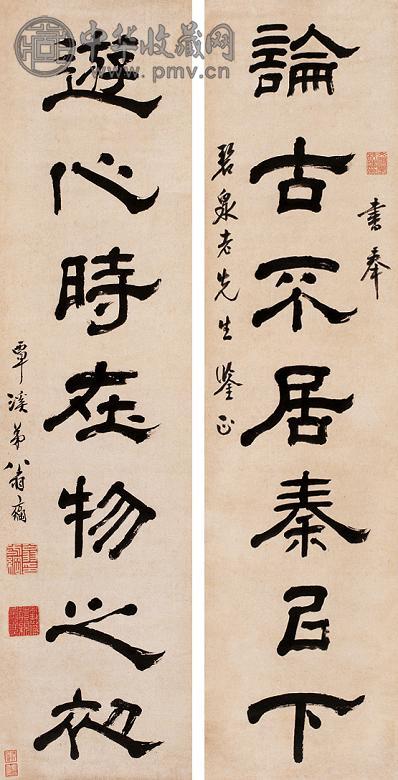 中华收藏网
www.pmv.cn
論古不居秦㠯下
書奉
碧泉老先生鑒正
遊心時在物之初
覃溪弟翁方綱